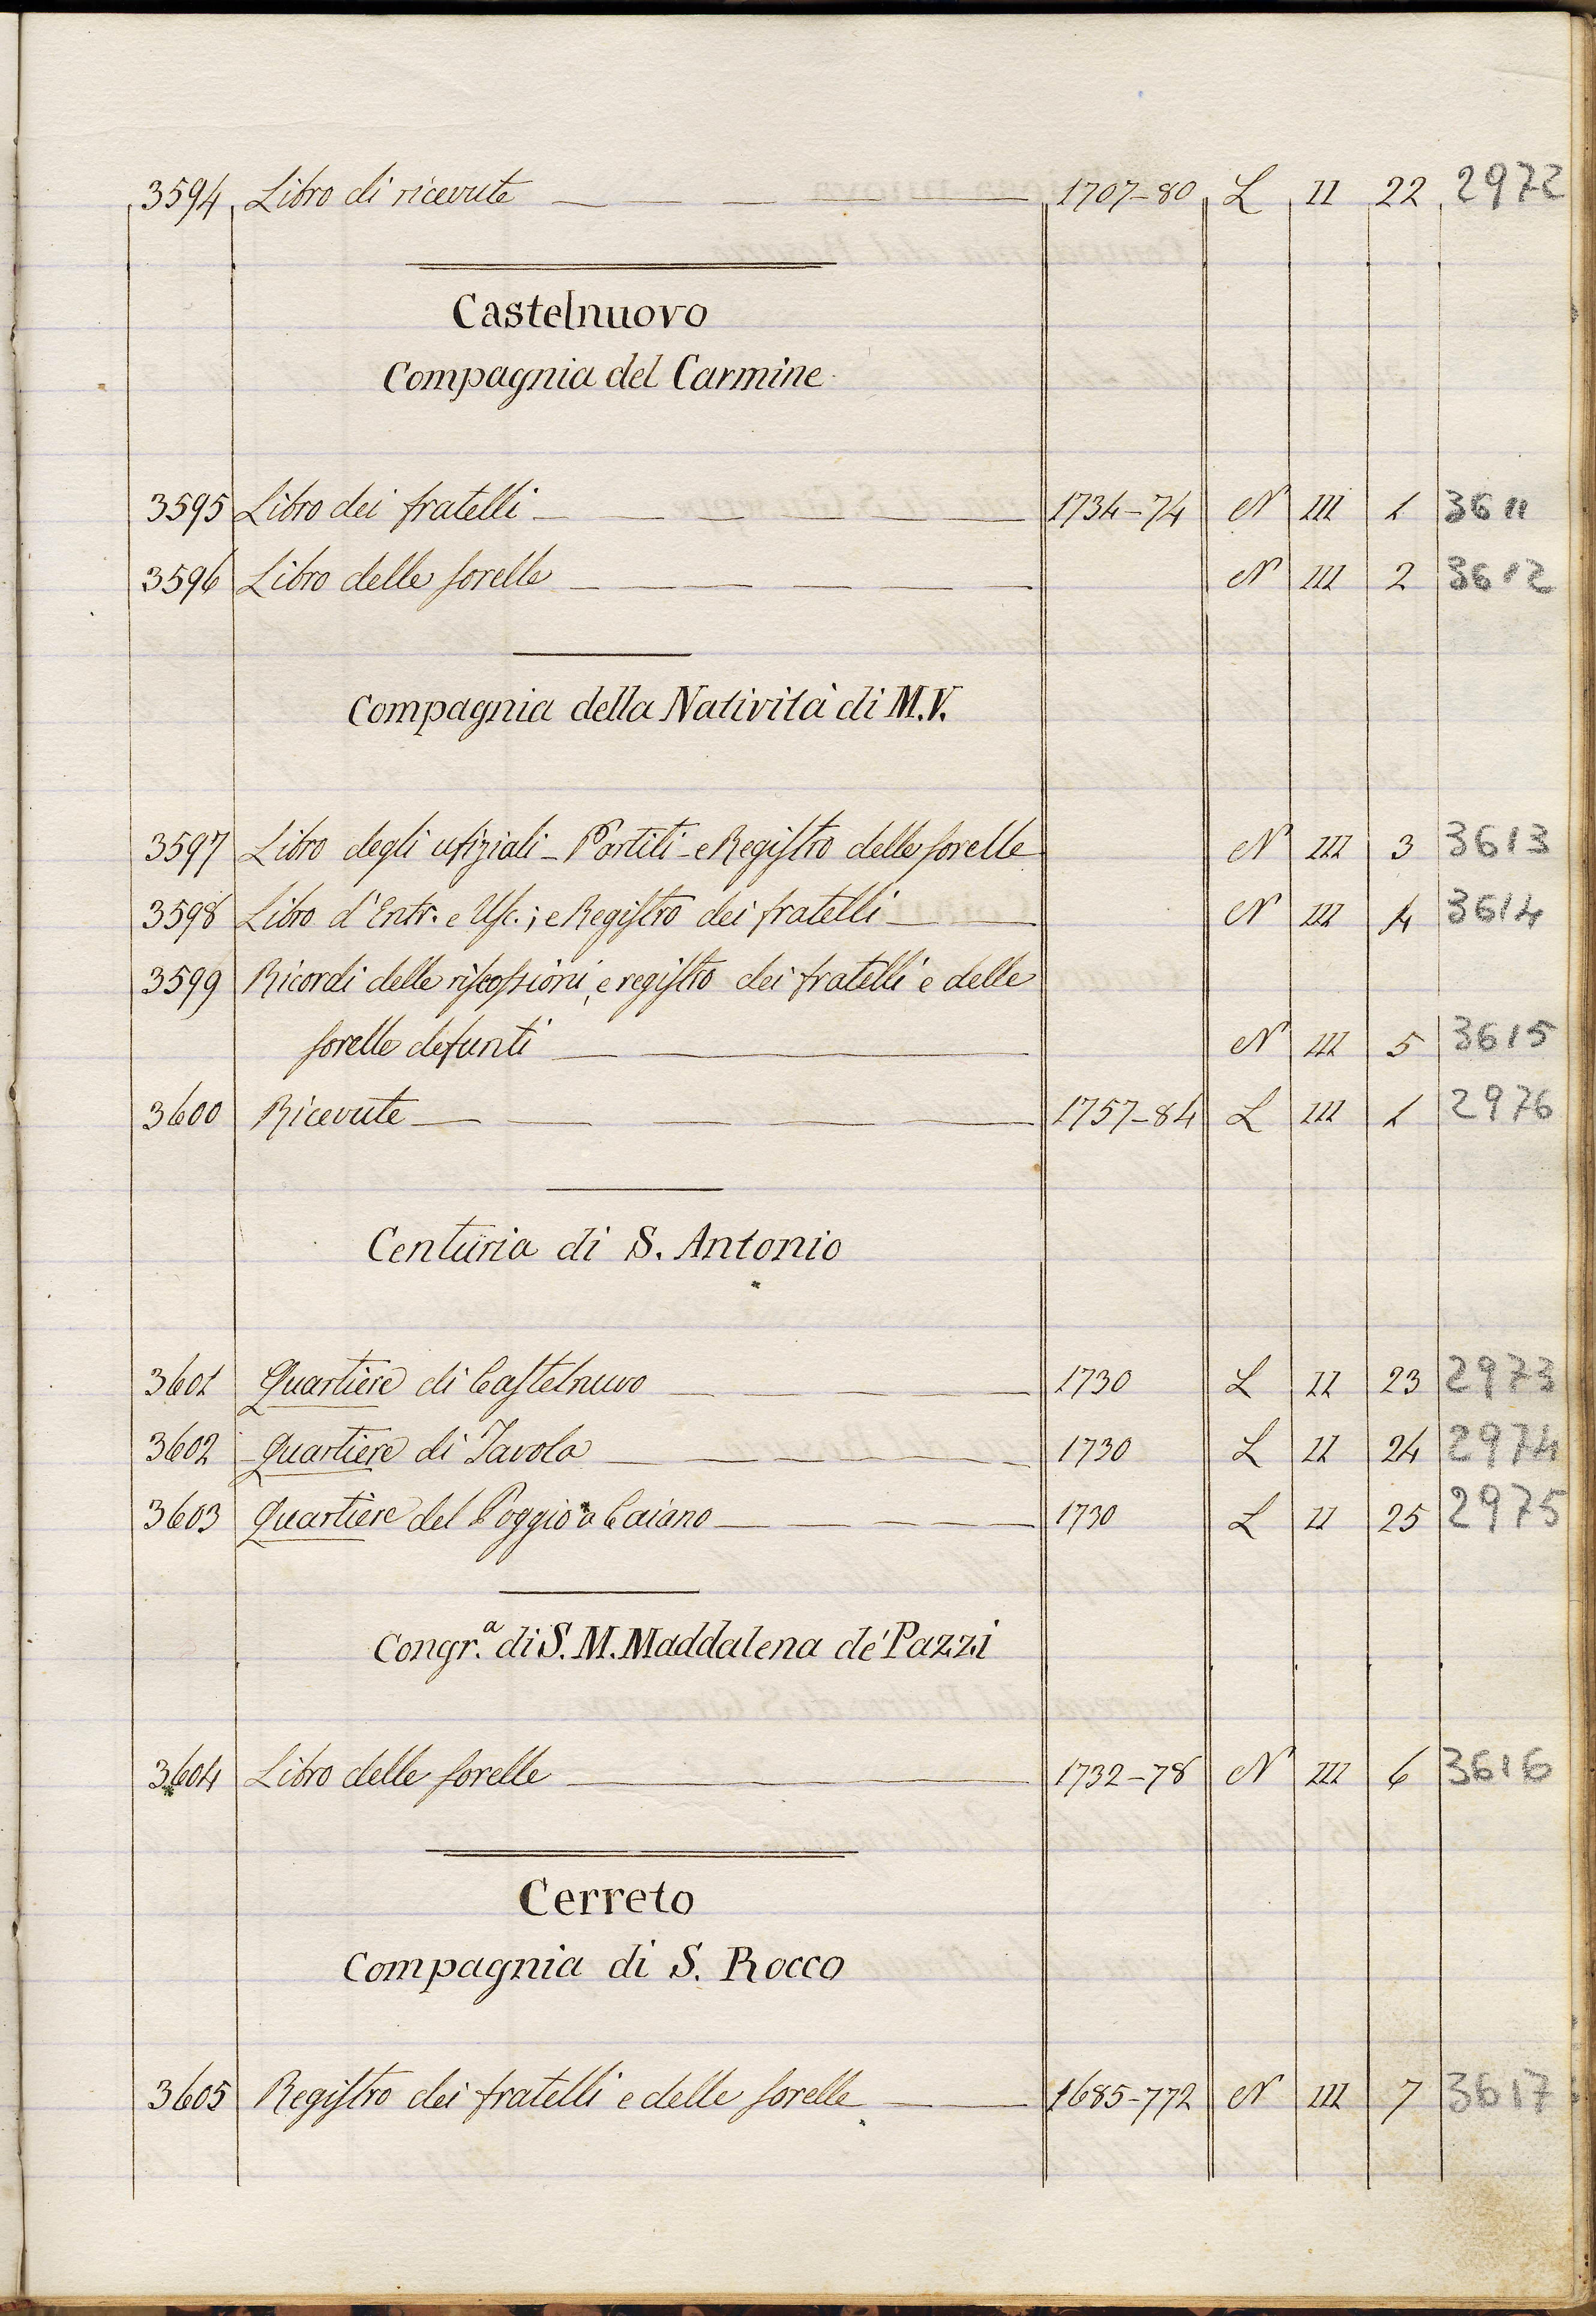 3594 Libro di ricevute 1707-80 L II 22 2972
Castelnuovo
Compagnia del Carmine
3595 Libro dei fratelli 1734-74 N III 1 3611
3596 Libro delle sorelle N III 2 3612
Compagnia della Natività di M.V.
3597 Libro degli ufiziali - Partiti - e Registro delle sorelle N III 3 3613
3598 Libro d'Entr. e Usc.; e Registro dei fratelli N III 4 3614
3599 Ricordi delle riscossioni, e registro dei fratelli e delle
sorelle defunti N III 5 3615
3600 Ricevute 1757-84 L III 1 2976
Centuria di S. Antonio
3601 Quartiere di Castelnuvo 1730 L II 23 2973
3602 Quartiere di Tavola 1730 L II 24 2974
3603 Quartiere del Poggio a Caiano 1730 L II 25 2975
Congr.a di S. M. Maddalena de' Pazzi
3604 Libro delle sorelle 1732-78 N III 6 3616
Cerreto
Compagnia di S. Rocco
3605 Registro dei fratelli e delle sorelle 1685-772 N III 7 3617